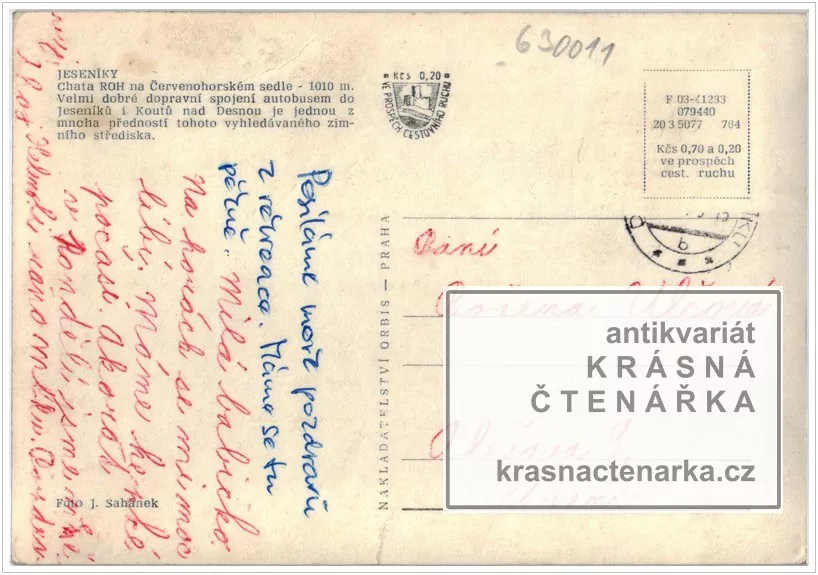 630011
JESENÍKY
Chata ROH na Červenohorském sedle - 1010 m.
Velmi dobré dopravní spojení autobusem do
Jeseníků i Koutů nad Desnou je jednou z
mnoha předností tohoto vyhledávaného zim-
ního střediska.
Kčs 0,20
VE PROSPĚCH CESTOVNÍHO RUCHU
F 03-41233
079440
20 3 5077 764
Kčs 0,70 a 0,20
ve prospěch
cest. ruchu
Posíláme moře pozdravů
z rekreace. Máme se tu
pěkně. Milá babičko.
Na horách se mi moc
líbí. Máme hezké
počasí. Akorát
v pondělí jsme
NAKLADATELSTVÍ ORBIS — PRAHA
b
Paní
Božena
Foto J. Sahánek
antikvariát
KRÁSNÁ
ČTENÁŘKA
krasnactenarka.cz